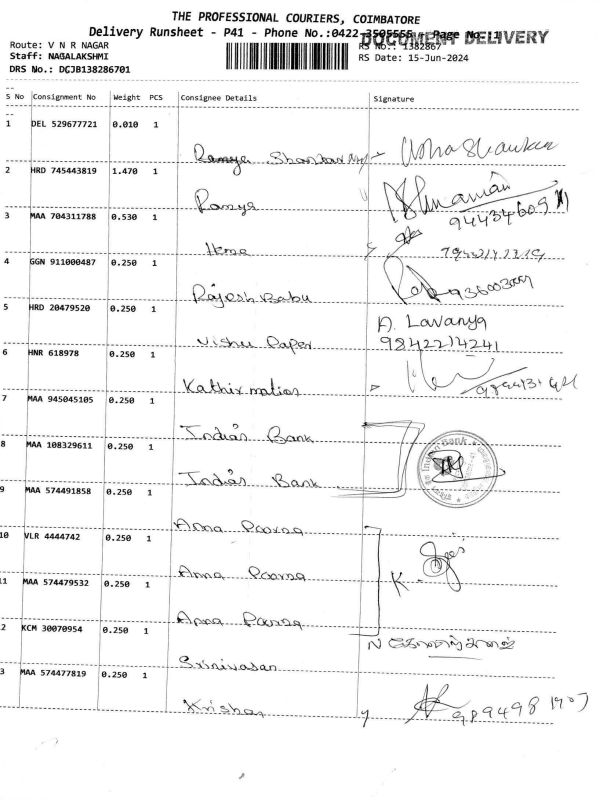 THE PROFESSIONAL COURIERS, COIMBATORE
Delivery Runsheet - P41 - Phone No.:0422-3505555 - Page No.:1
DOCUMENT DELIVERY
Route: V N R NAGAR
RS No.: 1382867
Staff: NAGALAKSHMI
RS Date: 15-Jun-2024
DRS No.: DGJB138286701
S No Consignment No Weight PCS Consignee Details Signature
1 DEL 529677721 0.010 1
Ramya Shankar
2 HRD 745443819 1.470 1
Ramya
9443434609
3 MAA 704311788 0.530 1
Hema
4 GGN 911000487 0.250 1
Rajesh Babu
5 HRD 20479520 0.250 1
A. Lavanya
Vishu Paper 9842214241
6 HNR 618978 0.250 1
Kathir
7 MAA 945045105 0.250 1
Indian Bank
8 MAA 108329611 0.250 1
Indian Bank
9 MAA 574491858 0.250 1
Anna Poorna
10 VLR 4444742 0.250 1
Anna Poorna
K.
11 MAA 574479532 0.250 1
Anna Poorna
2 KCM 30070954 0.250 1
Srinivasan
3 MAA 574477819 0.250 1
Krishan 989498 1907